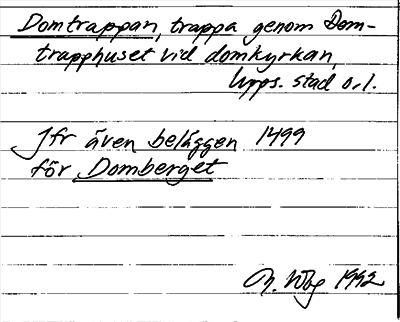 Domtrappan, trappa genom Dom-
trapphuset vid domkyrkan,
Upps. stad o.l.
Jfr även beläggen 1499
för Domberget
1992